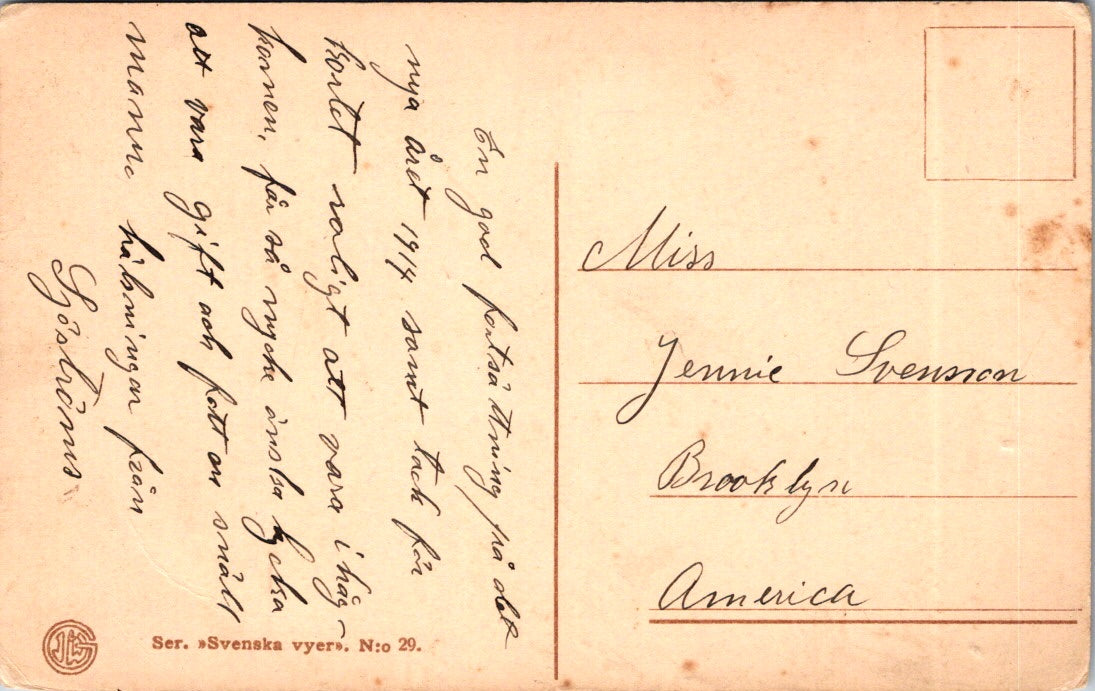 En god fortsättning på det
nya året 1914 samt tack för
kortet roligt att vara ihåg-
komen, får så mycke önska lycka
att vara gift och fott en snäll
mann, hälsningar från
Sjöströms
Miss
Jennie Svensson
Brooklyn
America
Ser. »Svenska vyer». N:o 29.